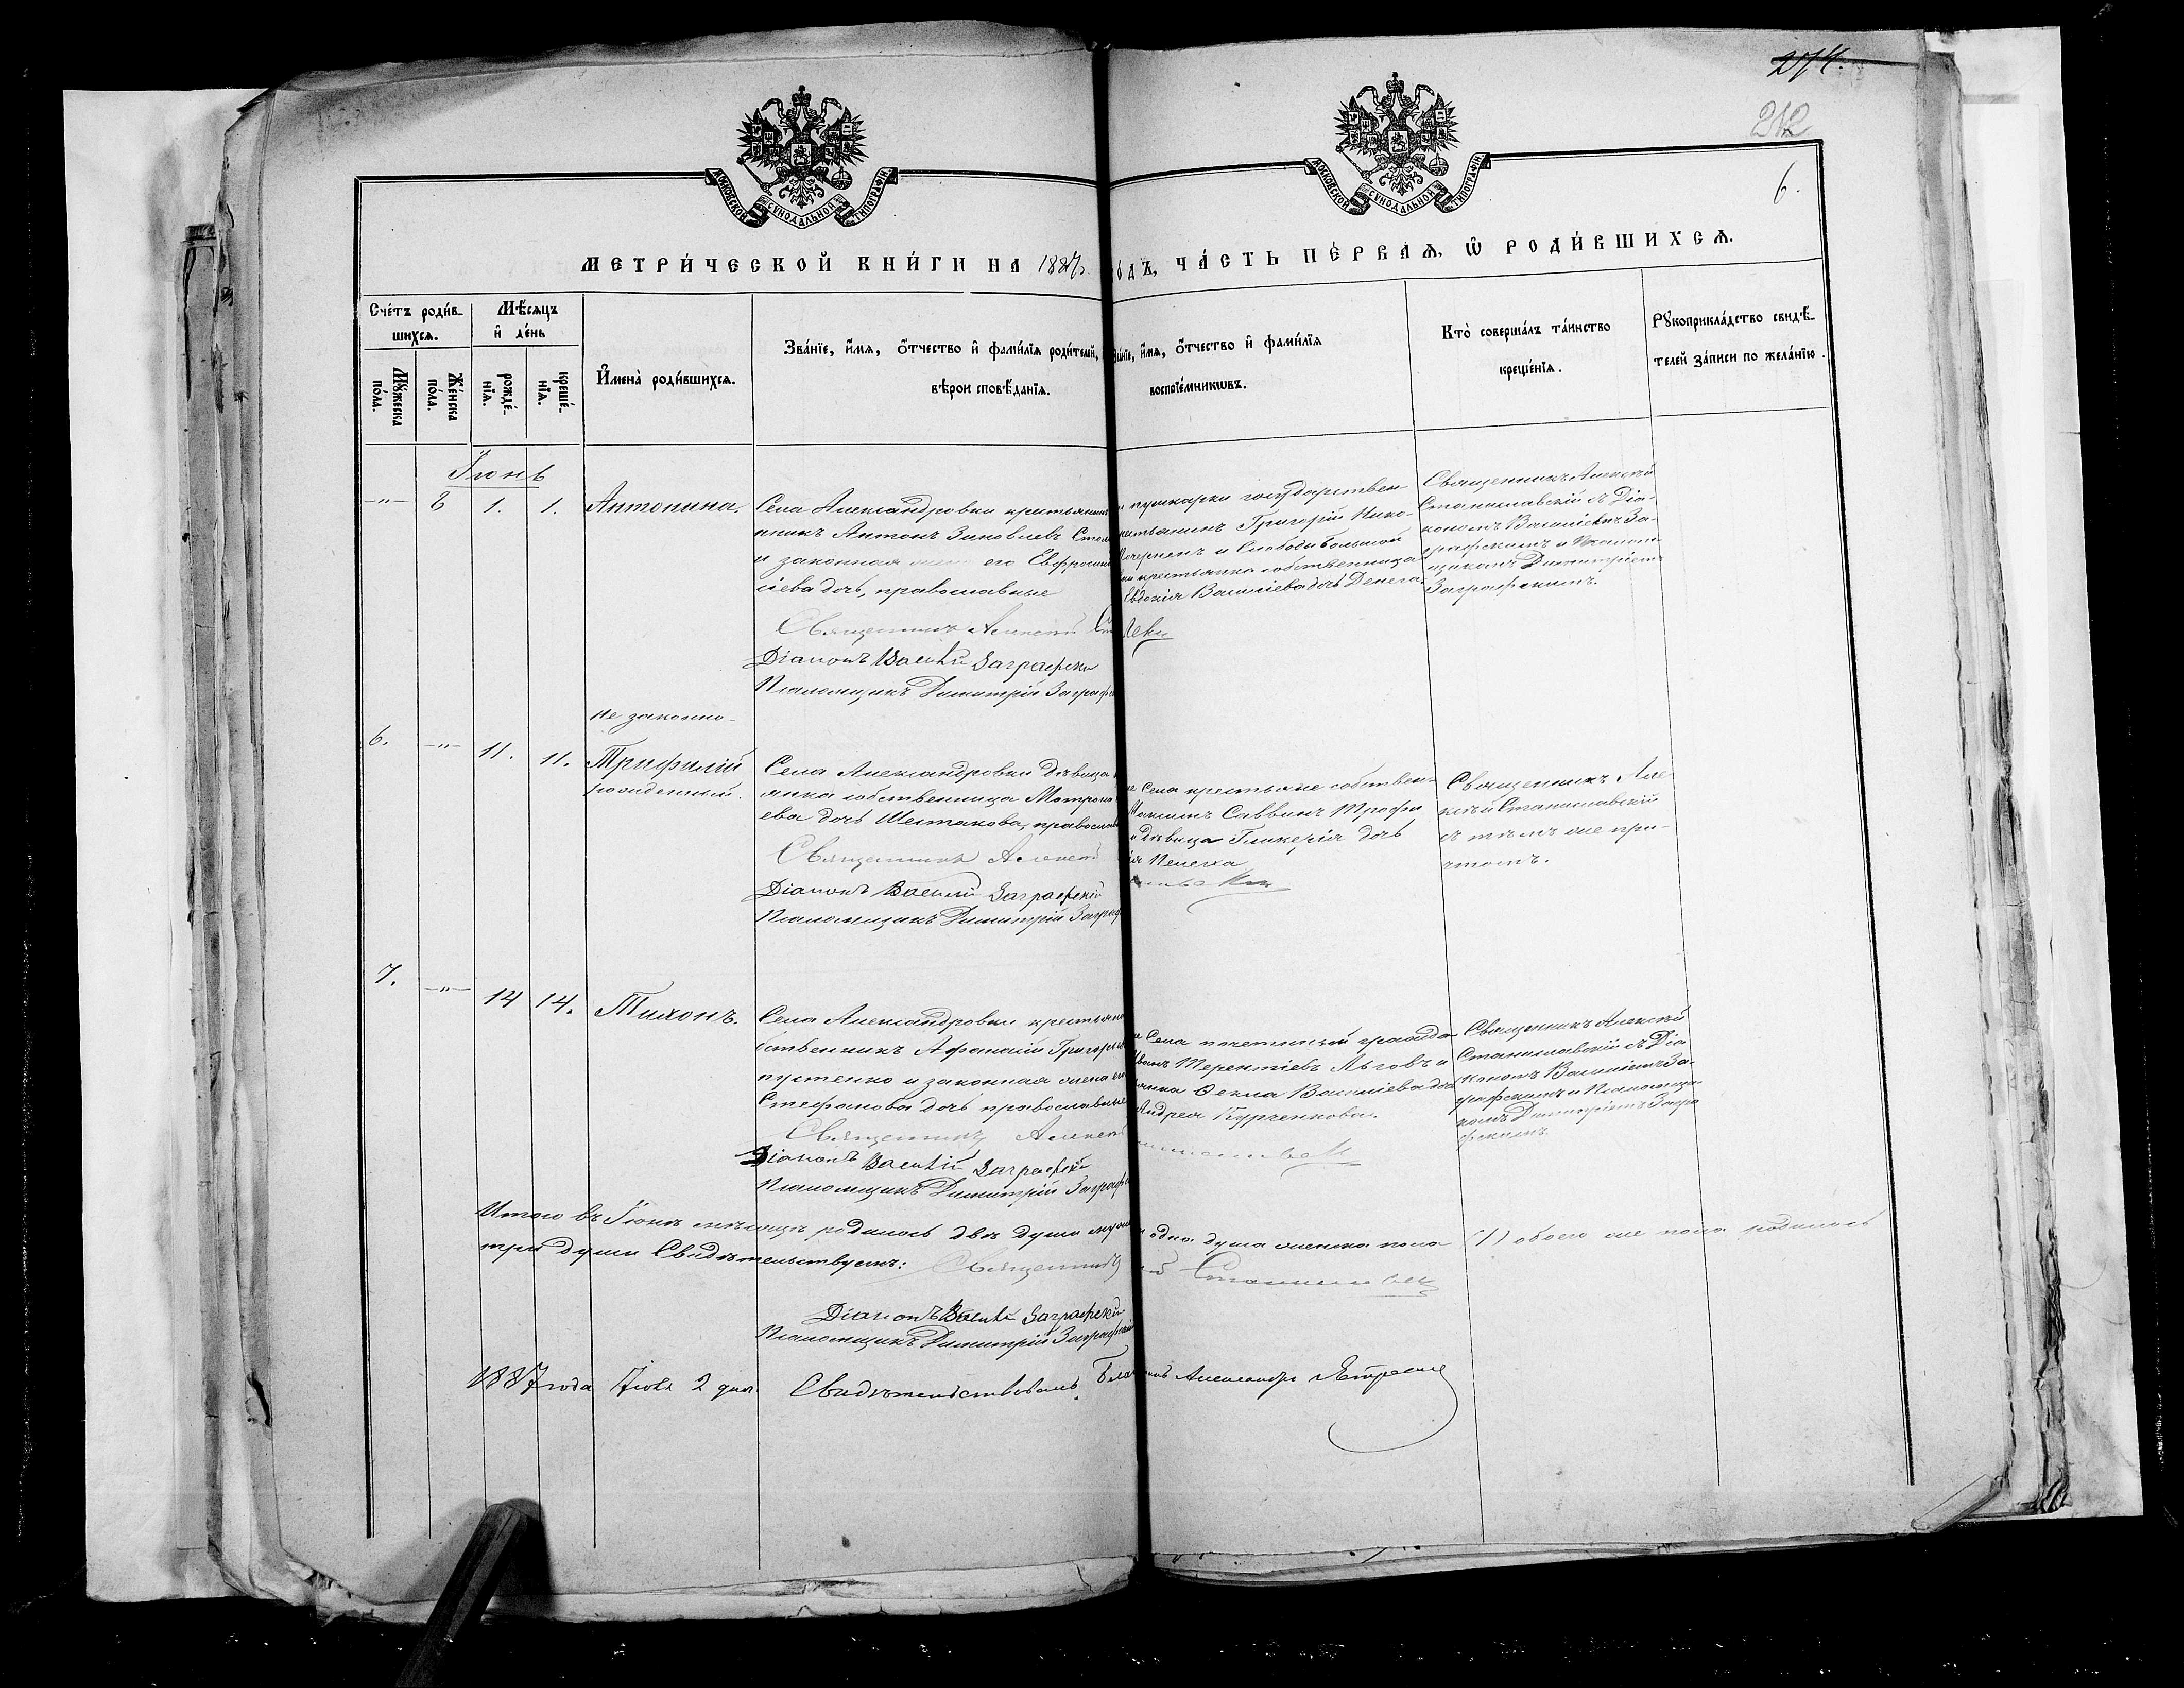 274.
212
6.
МОСКОВСКОЙ СѴНОДАЛЬНОЙ ТИПОГРАФІИ
МОСКОВСКОЙ СѴНОДАЛЬНОЙ ТИПОГРАФІИ
МЕТРИ́ЧЕСКОЙ КНИ́ГИ НА 1887
ЧА́СТЬ ПЕ́РВАЯ, Ѡ РОДИ́ВШИХСЯ.
Сче́тъ роди́в-
шихся.
Мѣ́сяцъ
и де́нь
Мꙋ́жеска
по́ла.
Же́нска
по́ла.
рожде́-
нїя.
креще́-
нїя.
Имена̀ роди́вшихся.
Зва́нїе, и́мя, о́тчество и фами́лїя роди́телей,
вѣроисповѣ́данїя.
и́мя, о́тчество и фами́лїя
воспрїе́мникωвъ.
Кто̀ соверша́лъ та́инство
креще́нїя.
Рꙋкоприкла́дство свидѣ́-
телей за́писи по жела́нїю.
Іюнь
-"- 8 1. 1. Антонина.
Села Александровки крестьянинъ
нникъ Антонъ Зиновьевъ
и законная жена его Евфросин
іева дочь, православные
Священникъ Алексѣй
Діаконъ Василій Заграфск
Псаломщикъ Димитрій Заграф
пушкарки государствен
Григорій Нико-
и Слободы Большой
крестьянка собственница
Евдокія Васильева дочь
Священникъ Алексѣй
Станиславскій съ Діа-
кономъ Василіемъ За-
графскимъ и Псалом-
щикомъ Димитріемъ
Заграфскимъ.
6. -"- 11. 11.
не законно-
Трифилій
рожденный.
Села Александровки дѣвица
янка собственница Матрона
ева дочь Шестакова, православ
Священникъ Алексѣй
Діаконъ Василій Заграфскій
Псаломщикъ Димитрій Заграф
Села крестьяне собствен-
Саввинъ Трофи
и дѣвица Гликерія дочь
Священникъ Але
ксѣй Станиславскій
съ тѣмъ же при-
чтомъ.
7. -"- 14 14. Тихонъ.
Села Александровки крестьян
ственникъ Афанасій Григорьев
пустенко и законная жена его
Стефанова дочь православные
Священникъ Алексѣй
Діаконъ Василій Заграфскій
Псаломщикъ Димитрій Заграф
Села почетный гражда
Терентіевъ Льговъ и
Ѳекла Василіева доч
Андрея
Священникъ Алексѣй
Станиславскій съ Діа
кономъ Василіемъ За-
графскимъ и Псаломщи-
комъ Димитріемъ Загра
фскимъ.
Итого въ Іюнѣ мѣсяцѣ родилось двѣ души муж
одна душа женска пола
обоего же пола родилось
три души Свидѣтельствуемъ: Священникъ
Станиславск
Діаконъ Василій Заграфскій
Псаломщикъ Димитрій Заграфскій
1887 года Іюля 2 дня. Свидѣтельствовалъ,
Александръ